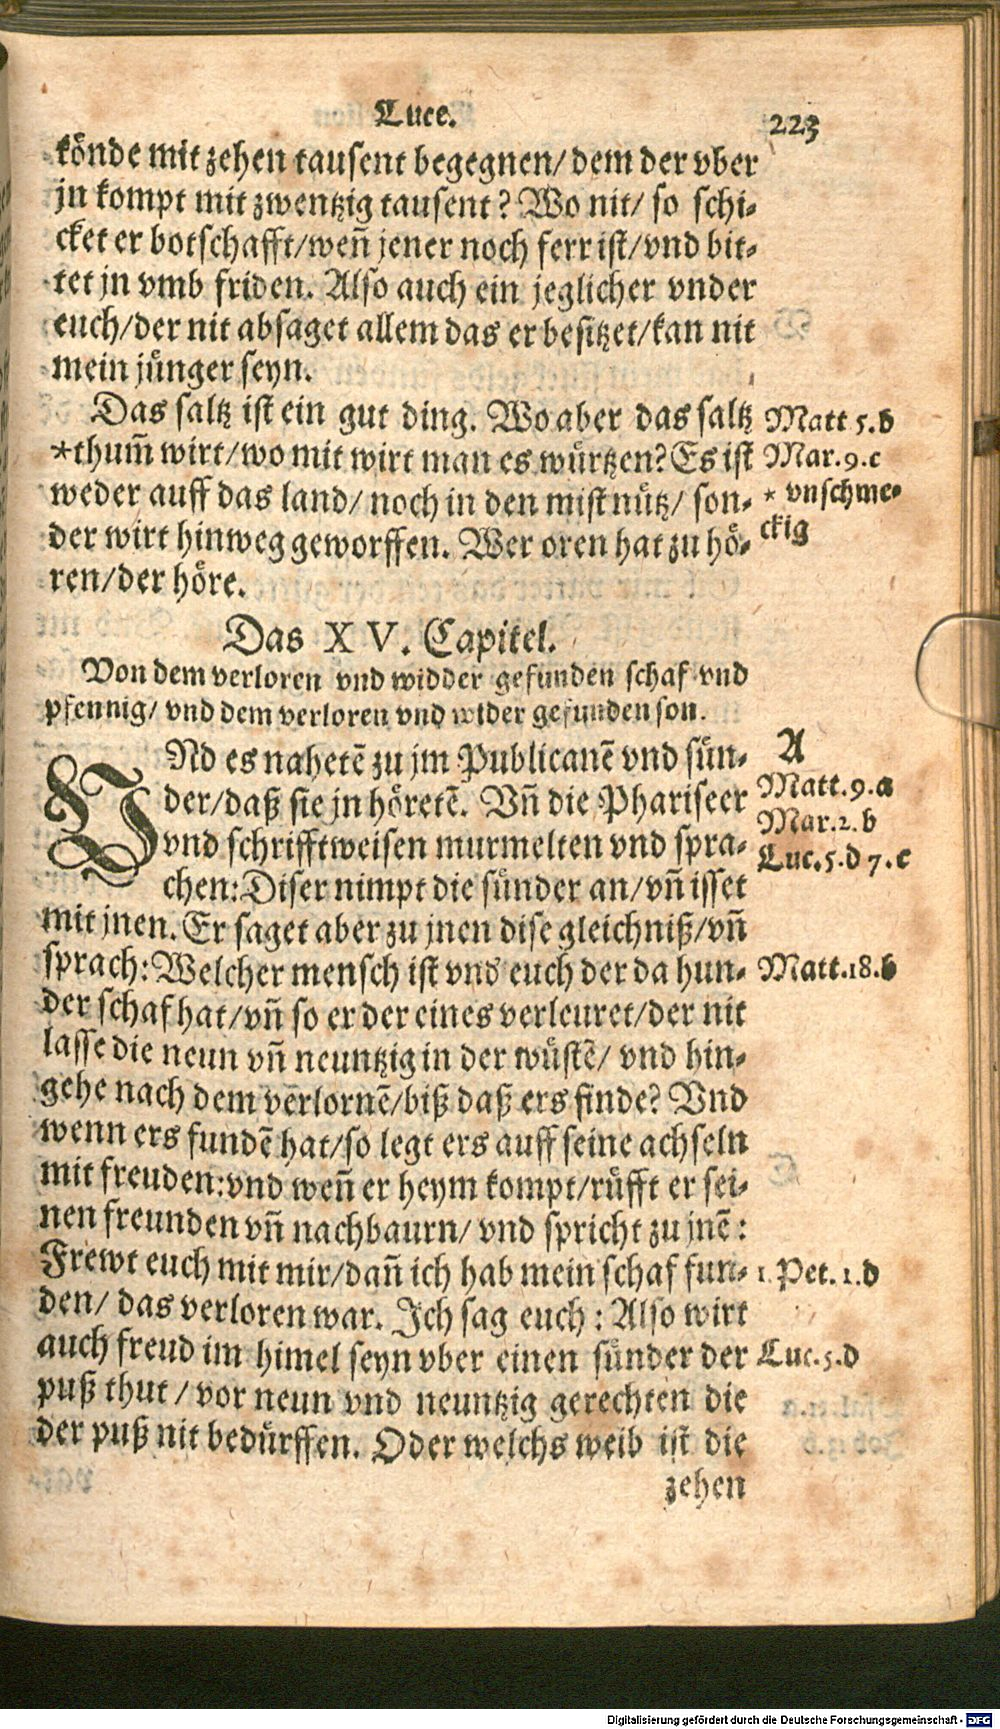 Luce. 223
könde mit zehen tausent begegnen/ dem der vber
jn kompt mit zwentzig tausent? Wo nit/ so schi-
cket er botschafft/ weñ jener noch ferr ist/ vnd bit-
tet jn vmb friden. Also auch ein jeglicher vnder
euch/ der nit absaget allem das er besitzet/ kan nit
mein jünger seyn.
Das saltz ist ein gut ding. Wo aber das saltz Matt 5.b
*thum̃ wirt/ wo mit wirt man es würtzen? Es ist Mar.9.c
weder auff das land/ noch in den mist nütz/ son- * vnschme-
der wirt hinweg geworffen. Wer oren hat zu hö- ckig
ren/ der höre.
Das XV. Capitel.
Von dem verloren vnd widder gefunden schaf vnd
pfennig/ vnd dem verloren vnd wider gefunden son.
VNd es nahetẽ zu jm Publicanẽ vnd sün- A
der/ daß sie jn höretẽ. Vñ die Phariseer Matt.9.a
vnd schrifftweisen murmelten vnd spra- Mar.2.b
chen: Diser nimpt die sünder an/ vñ isset Luc.5.d 7.c
mit jnen. Er saget aber zu jnen dise gleichniß/ vñ
sprach: Welcher mensch ist vnd euch der da hun- Matt.18.b
der schaf hat/ vñ so er der eines verleuret/ der nit
lasse die neun vñ neuntzig in der wüstẽ/ vnd hin-
gehe nach dem verlornẽ/ biß daß ers finde? Vnd
wenn ers fundẽ hat/ so legt ers auff seine achseln
mit freuden: vnd weñ er heym kompt/ rüfft er sei-
nen freunden vñ nachbaurn/ vnd spricht zu jnẽ:
Frewt euch mit mir/ dañ ich hab mein schaf fun- 1. Pet. 1.d
den/ das verloren war. Ich sag euch: Also wirt
auch freud im himel seyn vber einen sünder der Luc.5.d
puß thut/ vor neun vnd neuntzig gerechten die
der puß nit bedürffen. Oder welchs weib ist die
zehen
Digitalisierung gefördert durch die Deutsche Forschungsgemeinschaft - DFG